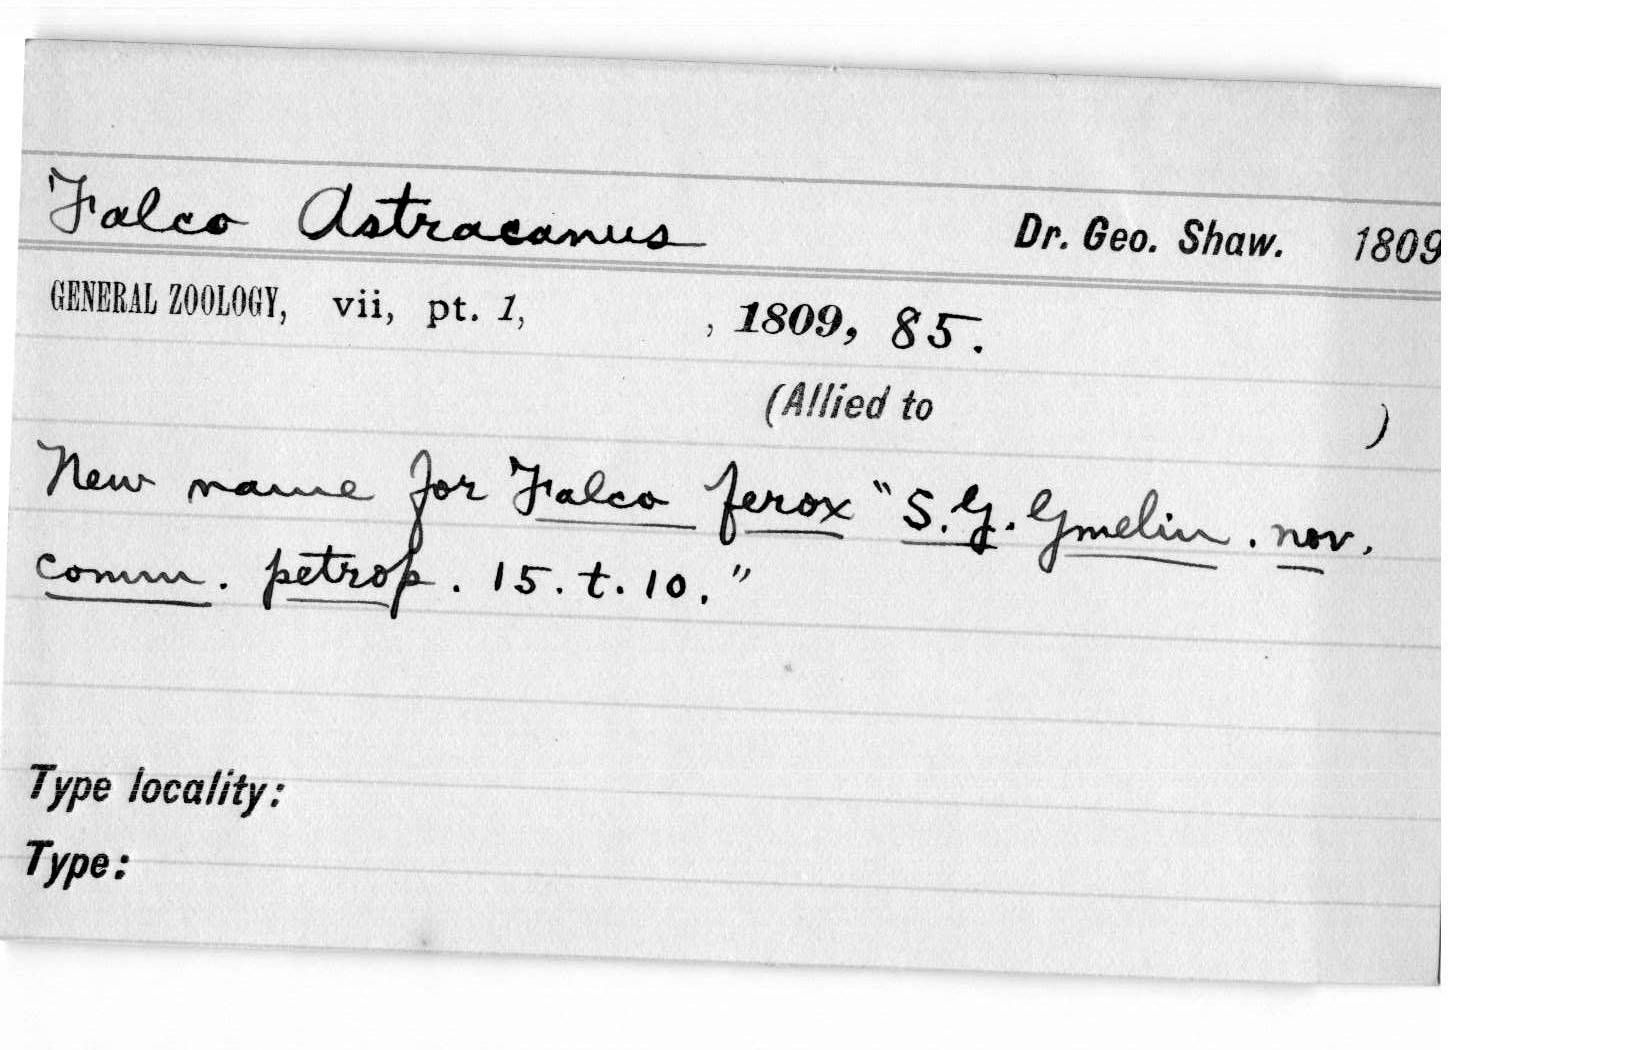 Falco Astracanus Dr. Geo. Shaw. 1809
GENERAL ZOOLOGY, vii, pt. 1, , 1809, 85.
(Allied to )
New name for Falco ferox "S.G. Gmelin. nov.
comm. petrop. 15. t. 10."
Type locality:
Type: